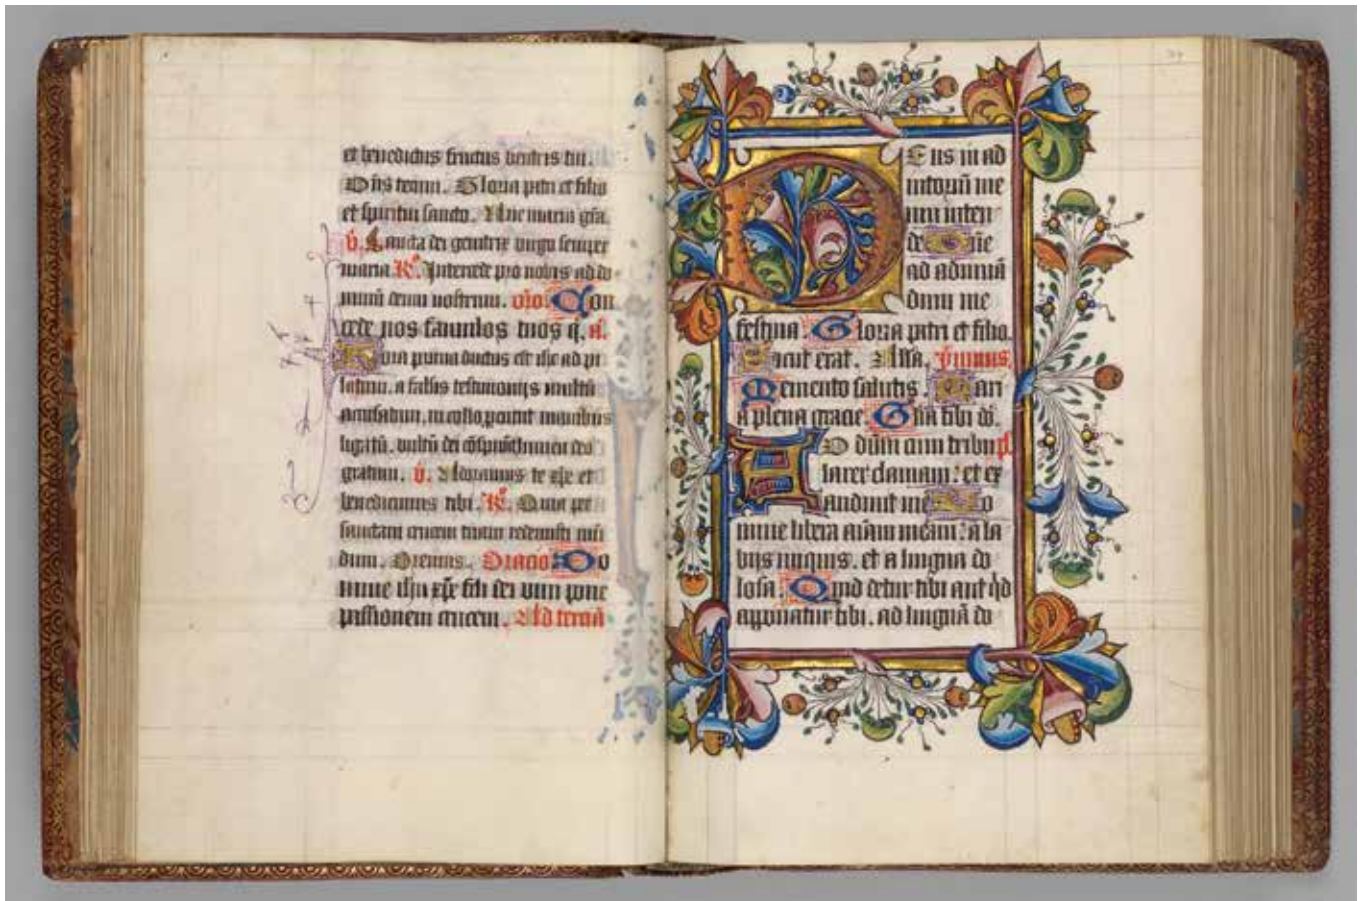 et benedictus fructus ventris tui.
Dn̄s tecum. Gloria patri et filio
et spiritui sancto. Aue maria grā.
v̄. Sancta dei genitrix uirgo semper
maria R̄. Intercede pro nobis ad do
minū deum nostrum. or̄o. Con
cede nos famulos tuos q̄. a.
Hora prima ductus est ih̄c ad pi
latum. a falsis testimoniis multū
accusatum, in collo percutit manibus
ligatū. vultū dei
gratum. v̄. Adoramus te xp̄e et
benedicimus tibi. R̄. Quia per
sanctam crucem tuam redemisti mū
dum. Oremus. Oracio Do
mine ih̄u xp̄e fili dei viui pone
passionem crucem. Ad terciā
Deus in ad
iutoriū me
um inten
de Dn̄e
ad adiuuā
dum me
festina. Gloria patri et filio.
Sicut erat. Alla. ym̄nus.
Memento salutis. Mari
a plena gracie. Gl̄ia tibi dō.
AD dūm cum tribu p̄.
larer clamaui: et ex
audiuit me Do
mine libera aīam meam: a la
biis iniquis. et a lingua do
losa. Quid detur tibi aut q̄d
apponatur tibi. ad linguā do